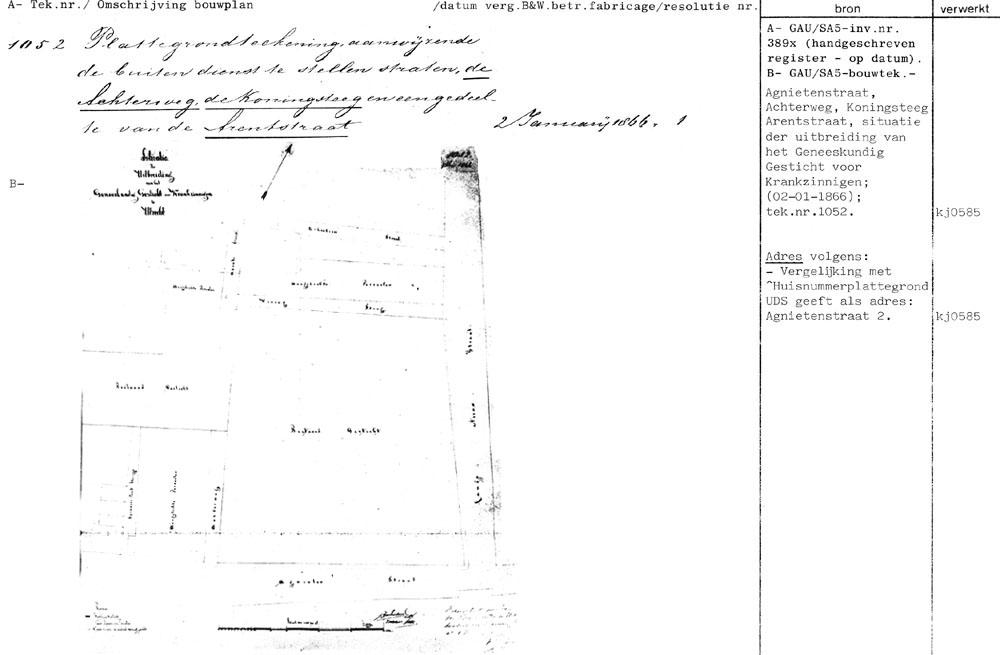 A- Tek.nr./ Omschrijving bouwplan /datum verg.B&W.betr.fabricage/resolutie nr.
bron
verwerkt
1052 Plattegrondteekening, aanwijzende
de buiten dienst te stellen straten, de
Achterweg, de Koningsteeg en een gedeel-
te van de Arentstraat 2 Januarij 1866. 1
B-
Situatie
der
Uitbreiding
van het
Geneeskundig Gesticht voor Krankzinnigen
te
Utrecht
Straat
Steeg
Bestaand Gesticht
Bestaand Gesticht
Achterweg
Straat
Lange Nieuw Straat
Agnieten Straat
A- GAU/SA5-inv.nr.
389x (handgeschreven
register - op datum).
B- GAU/SA5-bouwtek.-
Agnietenstraat,
Achterweg, Koningsteeg
Arentstraat, situatie
der uitbreiding van
het Geneeskundig
Gesticht voor
Krankzinnigen;
(02-01-1866);
tek.nr.1052.
kj0585
Adres volgens:
- Vergelijking met
^Huisnummerplattegrond
UDS geeft als adres:
Agnietenstraat 2.
kj0585